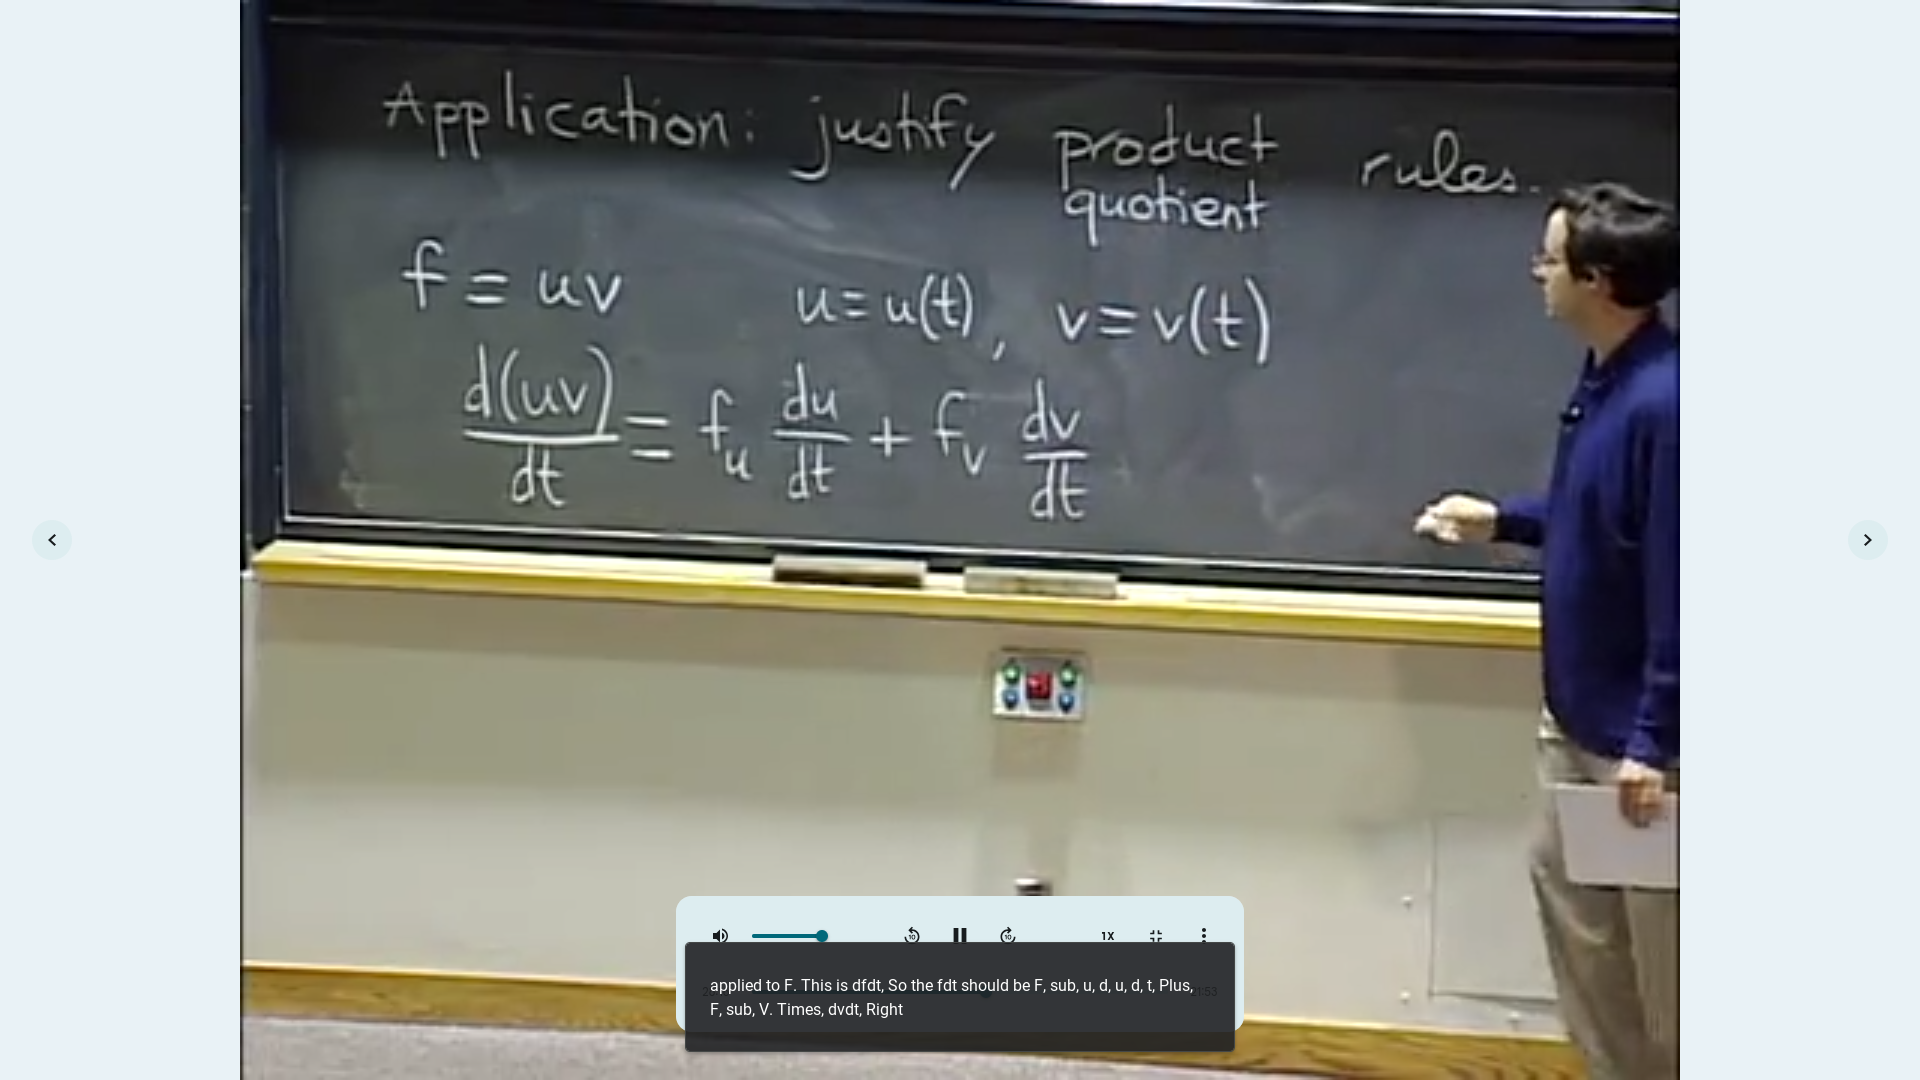 Application: justify product rules.
quotient
f = uv u = u(t), v = v(t)
d(uv)/dt = f_u du/dt + f_v dv/dt
10 10 1X
applied to F. This is dfdt, So the fdt should be F, sub, u, d, u, d, t, Plus,
F, sub, V. Times, dvdt, Right